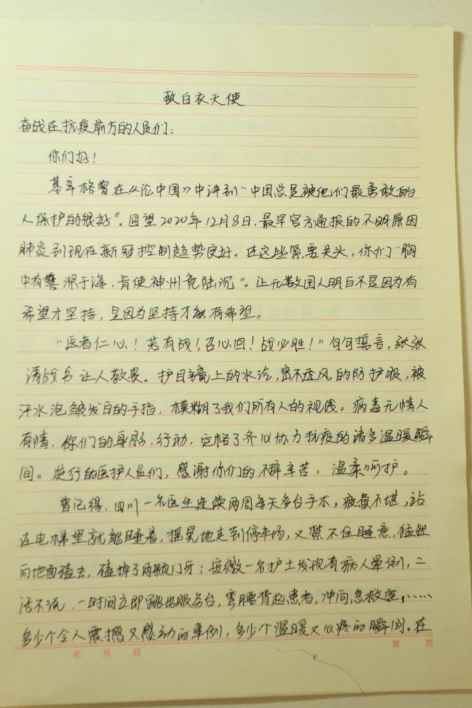 致白衣天使
奋战在抗疫前方的人员们：
你们好！
基辛格曾在《论中国》中评到“中国总是被他们最勇敢的
人保护的很好”。回望2020年12月8日，最早官方通报的不明原因
肺炎到现在新冠控制趋势良好。在这些紧要关头，你们“胸
中有誓深于海，肯使神州竟陆沉”。让无数国人明白不是因为有
希望才坚持，是因为坚持才能有希望。
“医者仁心！若有战！召必回！战必胜！”句句誓言，张张
请战书让人敬畏。护目镜上的水汽，密不透风的防护服，被
汗水泡皱发白的手指，模糊了我们所有人的视线。病毒无情人
有情，你们的身影，行动，定格了齐心协力抗疫的诸多温暖瞬
间。逆行的医护人员们，感谢你们的不辞辛苦，温柔呵护。
曾记得，四川一名医生连续两周每天多台手术，疲惫不堪，站
在电梯里就能睡着，摇晃地走到停车场，又禁不住睡意，猛然
向地面磕去，磕掉了两颗门牙；安徽一名护士发现有病人晕倒，二
话不说，一时间立即跳出服务台，弯腰背起患者，冲向急救室，……
多少个令人震撼又感动的事例，多少个温暖又心疼的瞬间。在
年 月 日
第 页